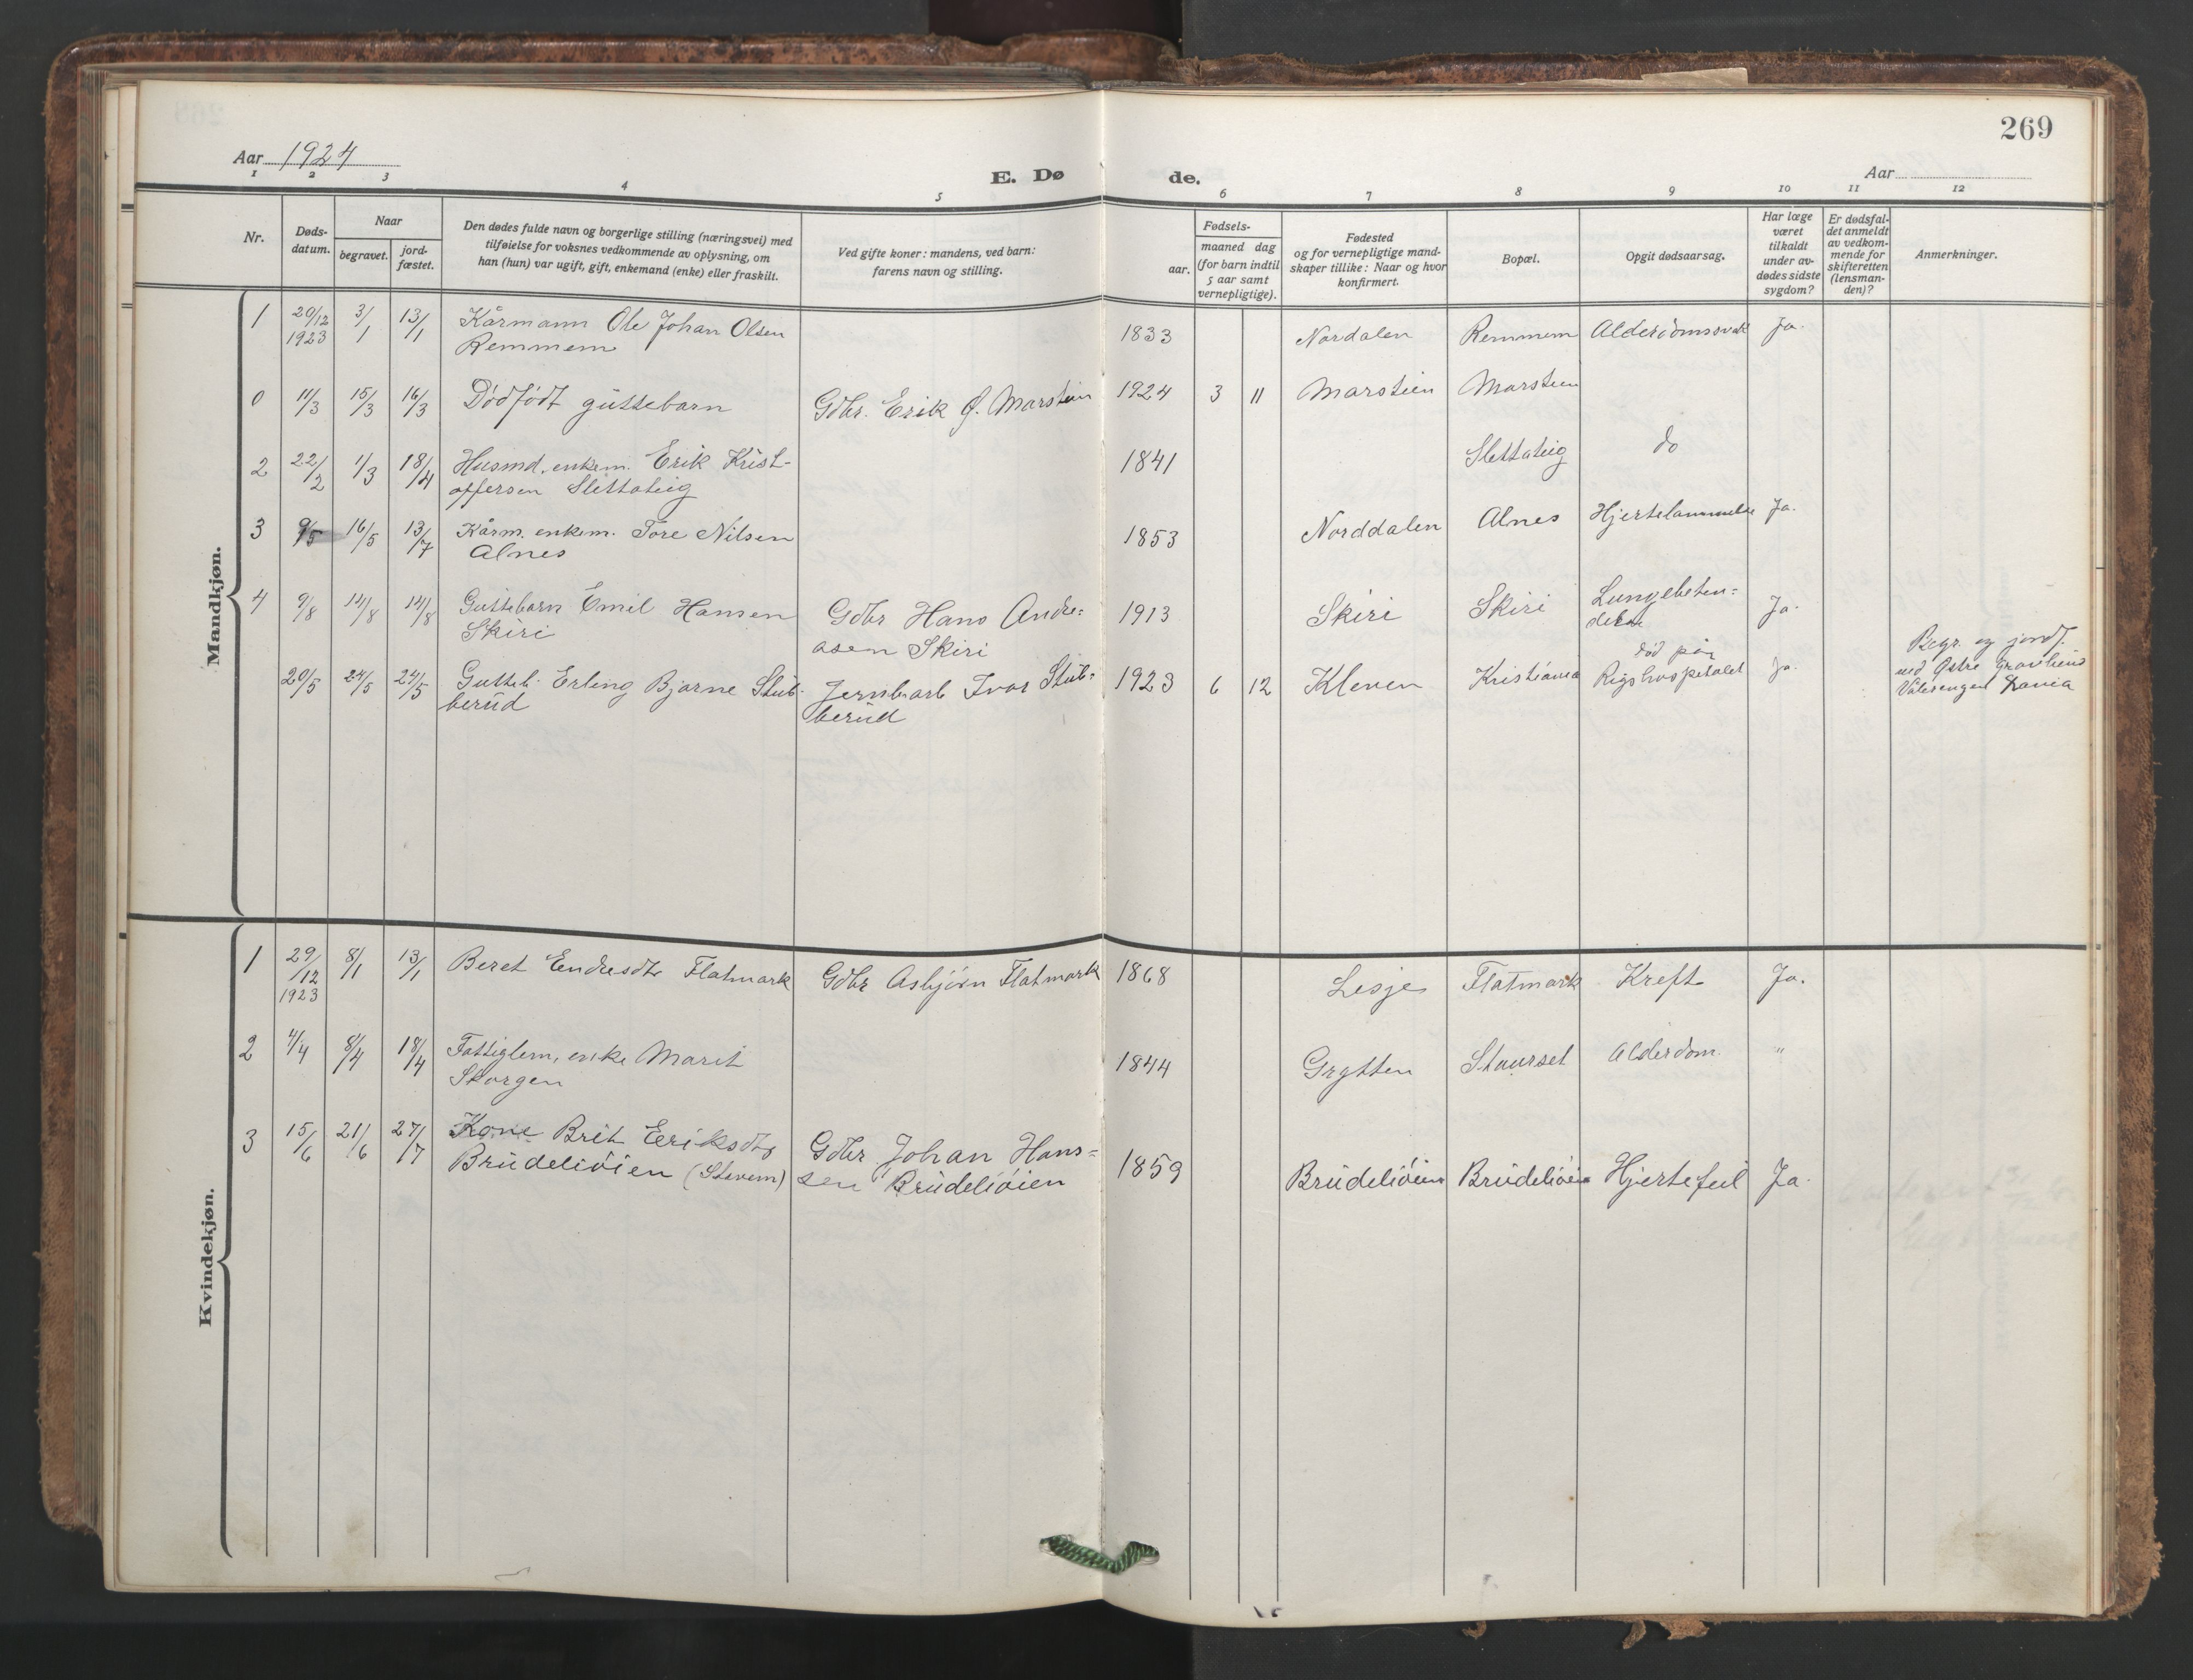 269
Aar 1924
E. Dø de.
Aar
1 2 3 4 5 6 7 8 9 10 11 12
Nr.
Døds-
datum.
Naar
begravet.
jord-
fæstet.
Den dødes fulde navn og borgerlige stilling (næringsvei) med
tilføielse for voksnes vedkommende av oplysning, om
han (hun) var ugift, gift, enkemand (enke) eller fraskilt.
Ved gifte koner: mandens, ved barn:
farens navn og stilling.
Fødsels-
aar.
maaned dag
(for barn indtil
5 aar samt
vernepligtige).
Fødested
og for vernepligtige mand-
skaper tillike: Naar og hvor
konfirmert.
Bopæl.
Opgit dødsaarsag.
Har læge
været
tilkaldt
under av-
dødes sidste
sygdom?
Er dødsfal-
det anmeldt
av vedkom-
mende for
skifteretten
(lensman-
den)?
Anmerkninger.
Mandkjøn.
1 20/12 1923 3/1 13/1 Kårmann Ole Johan Olsen
Remmem
1833 Nordalen Remmem Alderdomssvak Ja.
0 11/3 15/3 16/3 Dødfødt guttebarn Gdbr. Erik O. Marstein 1924 3 11 Marstein Marstein
2 22/2 1/3 18/4 Husmd. enkem. Erik Krist-
offersen Slettateig
1841 Slettateig do
3 9/5 16/5 13/7 Kårm. enkem. Tore Nilsen
Alnes
1853 Norddalen Alnes Hjertelammelse Ja.
4 9/8 14/8 14/8 Guttebarn Emil Hansen
Skiri
Gdbr Hans Andre-
asen Skiri
1913 Skiri Skiri Lungebeten-
delse
Ja.
20/5 24/5 24/5 Gutteb. Erling Bjarne Stub-
berud
Jernb.arb Ivar Stub-
berud
1923 6 12 Kleven Kristiania død på
Rigshospitalet Ja.
Begr. og jordf.
ved Østre Gravlund
Vålerengen
Kvindekjøn.
1 29/12 1923 8/1 13/1 Beret Endresdtr Flatmark Gdbr Asbjörn Flatmark 1868 Lesje Flatmark Kreft Ja.
2 4/4 8/4 18/4 Fattiglem, enke Marit
Skorgen
1844 Grytten Staurset Alderdom. "
3 15/6 21/6 27/7 Kone Brit Eriksdtr
Brudeliöien (Stavem)
Gdbr Johan Hans-
sen Brudeliöien
1859 Brudeliöien Brudeliöien Hjertefeil Ja.